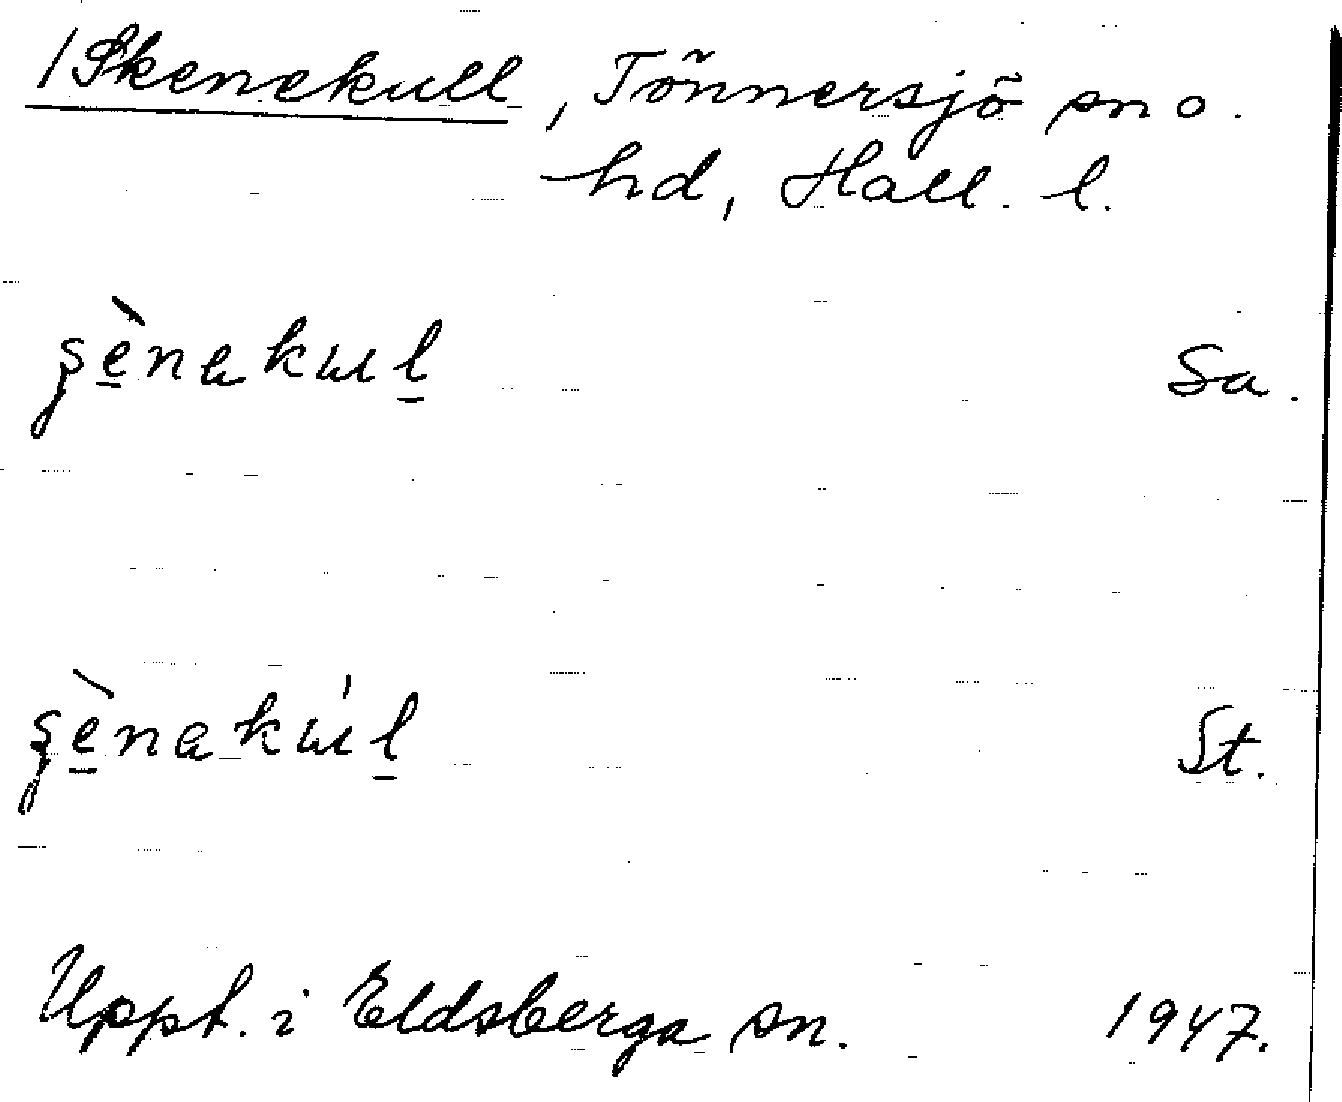 /Skenekull, Tönnersjö sn o.
hd, Hall. l.
ʂènakul Sa.
ʂènakúl St.
Uppt. i Eldsberga sn. 1947.